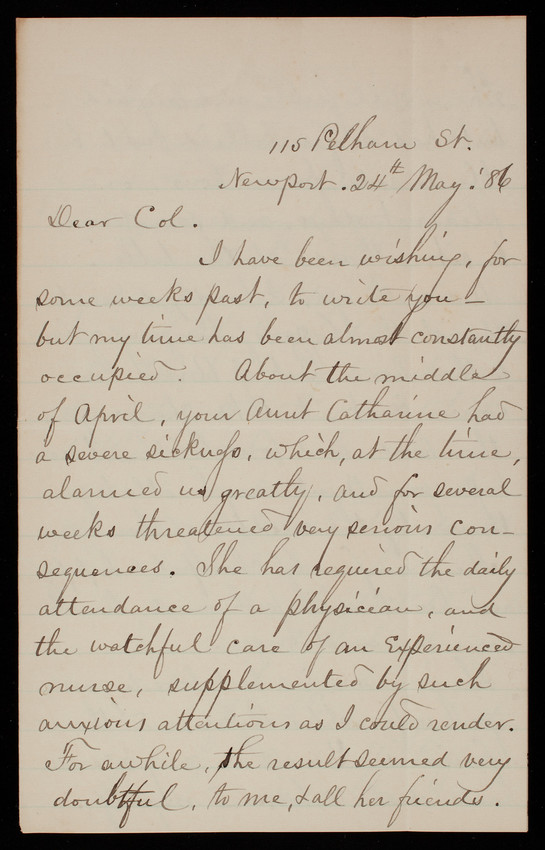 115 Pelham St.
Newport. 24th May. '86
Dear Col.
I have been wishing, for
some weeks past, to write you —
but my time has been almost constantly
occupied. About the middle
of April, your Aunt Catharine had
a severe sickness, which, at the time,
alarmed us greatly, and for several
weeks threatened very serious con-
sequences. She has required the daily
attendance of a physician, and
the watchful care of an Experienced
nurse, supplemented by such
anxious attentions as I could render.
For awhile, the result seemed very
doubtful, to me, & all her friends.